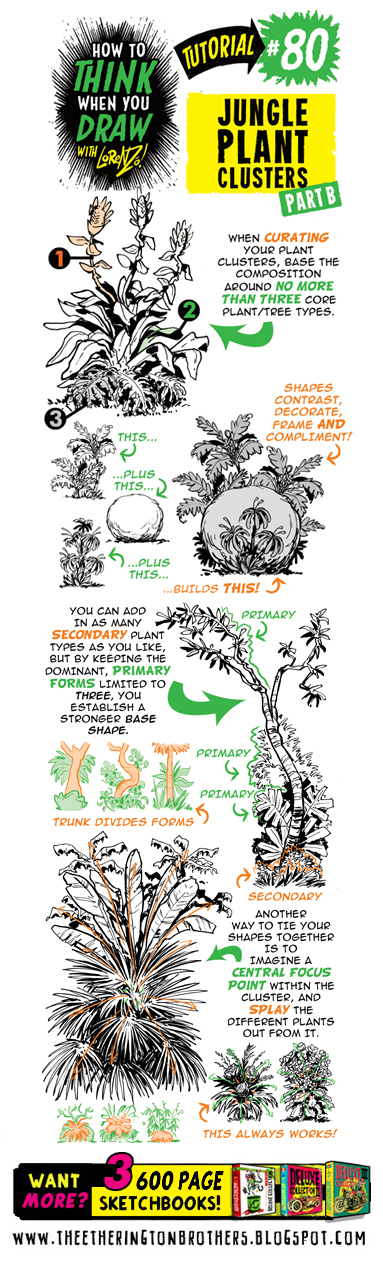 HOW TO
THINK
WHEN YOU
DRAW
WITH LORENZO!
TUTORIAL
#80
JUNGLE
PLANT
CLUSTERS
PART B
1
WHEN CURATING
YOUR PLANT
CLUSTERS, BASE THE
COMPOSITION
AROUND NO MORE
THAN THREE CORE
PLANT/TREE TYPES.
2
3
SHAPES
CONTRAST,
DECORATE,
FRAME AND
COMPLIMENT!
THIS...
...PLUS
THIS...
...PLUS
THIS...
...BUILDS THIS!
YOU CAN ADD
IN AS MANY
SECONDARY PLANT
TYPES AS YOU LIKE,
BUT BY KEEPING THE
DOMINANT, PRIMARY
FORMS LIMITED TO
THREE, YOU
ESTABLISH A
STRONGER BASE
SHAPE.
PRIMARY
PRIMARY
PRIMARY
TRUNK DIVIDES FORMS
SECONDARY
ANOTHER
WAY TO TIE YOUR
SHAPES TOGETHER
IS TO
IMAGINE A
CENTRAL FOCUS
POINT WITHIN THE
CLUSTER, AND
SPLAY THE
DIFFERENT PLANTS
OUT FROM IT.
THIS ALWAYS WORKS!
WANT
MORE?
3 600 PAGE
SKETCHBOOKS!
DELUXE
COLLECTION II
WWW.THEETHERINGTONBROTHERS.BLOGSPOT.COM